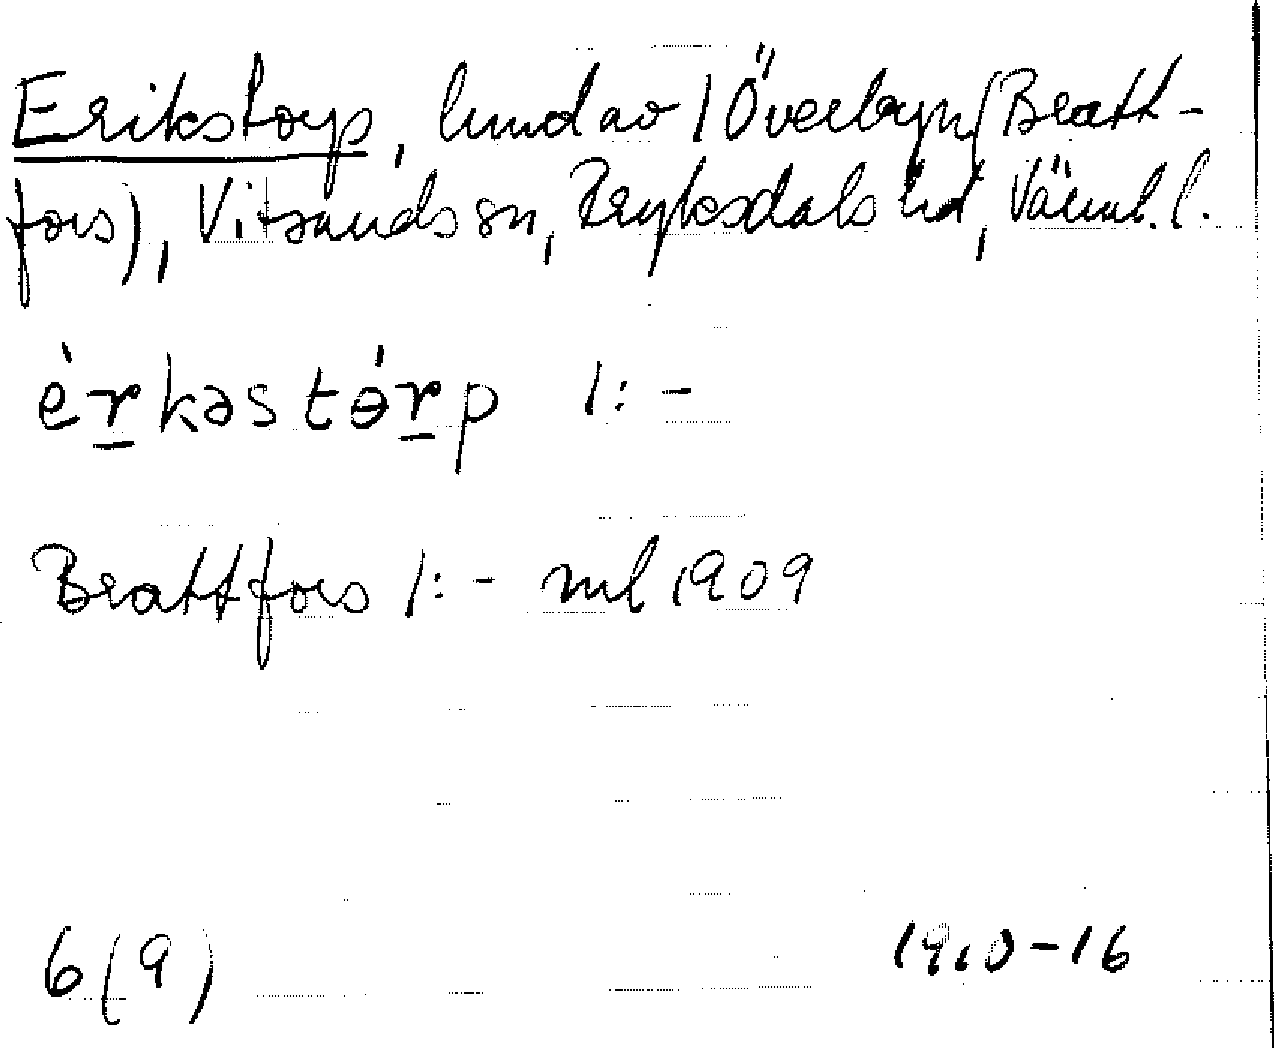 Erikstorp, lund av 1 Överbyn (Bratt-
fors), Vitsands sn, Fryksdals hd, Värml. l.
èrkəstórp 1:-
Brattfors 1:- ml 1909
6(9) 1910-16